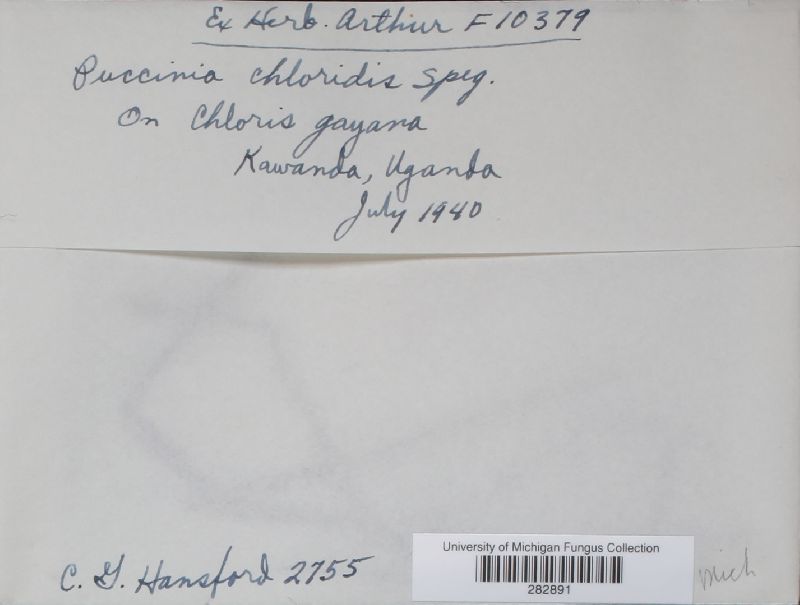 Ex Herb. Arthur F10379
Puccinia chloridis Speg.
On Chloris gayana
Kawanda, Uganda
July 1940
C. G. Hansford 2755
University of Michigan Fungus Collection
282891
mich